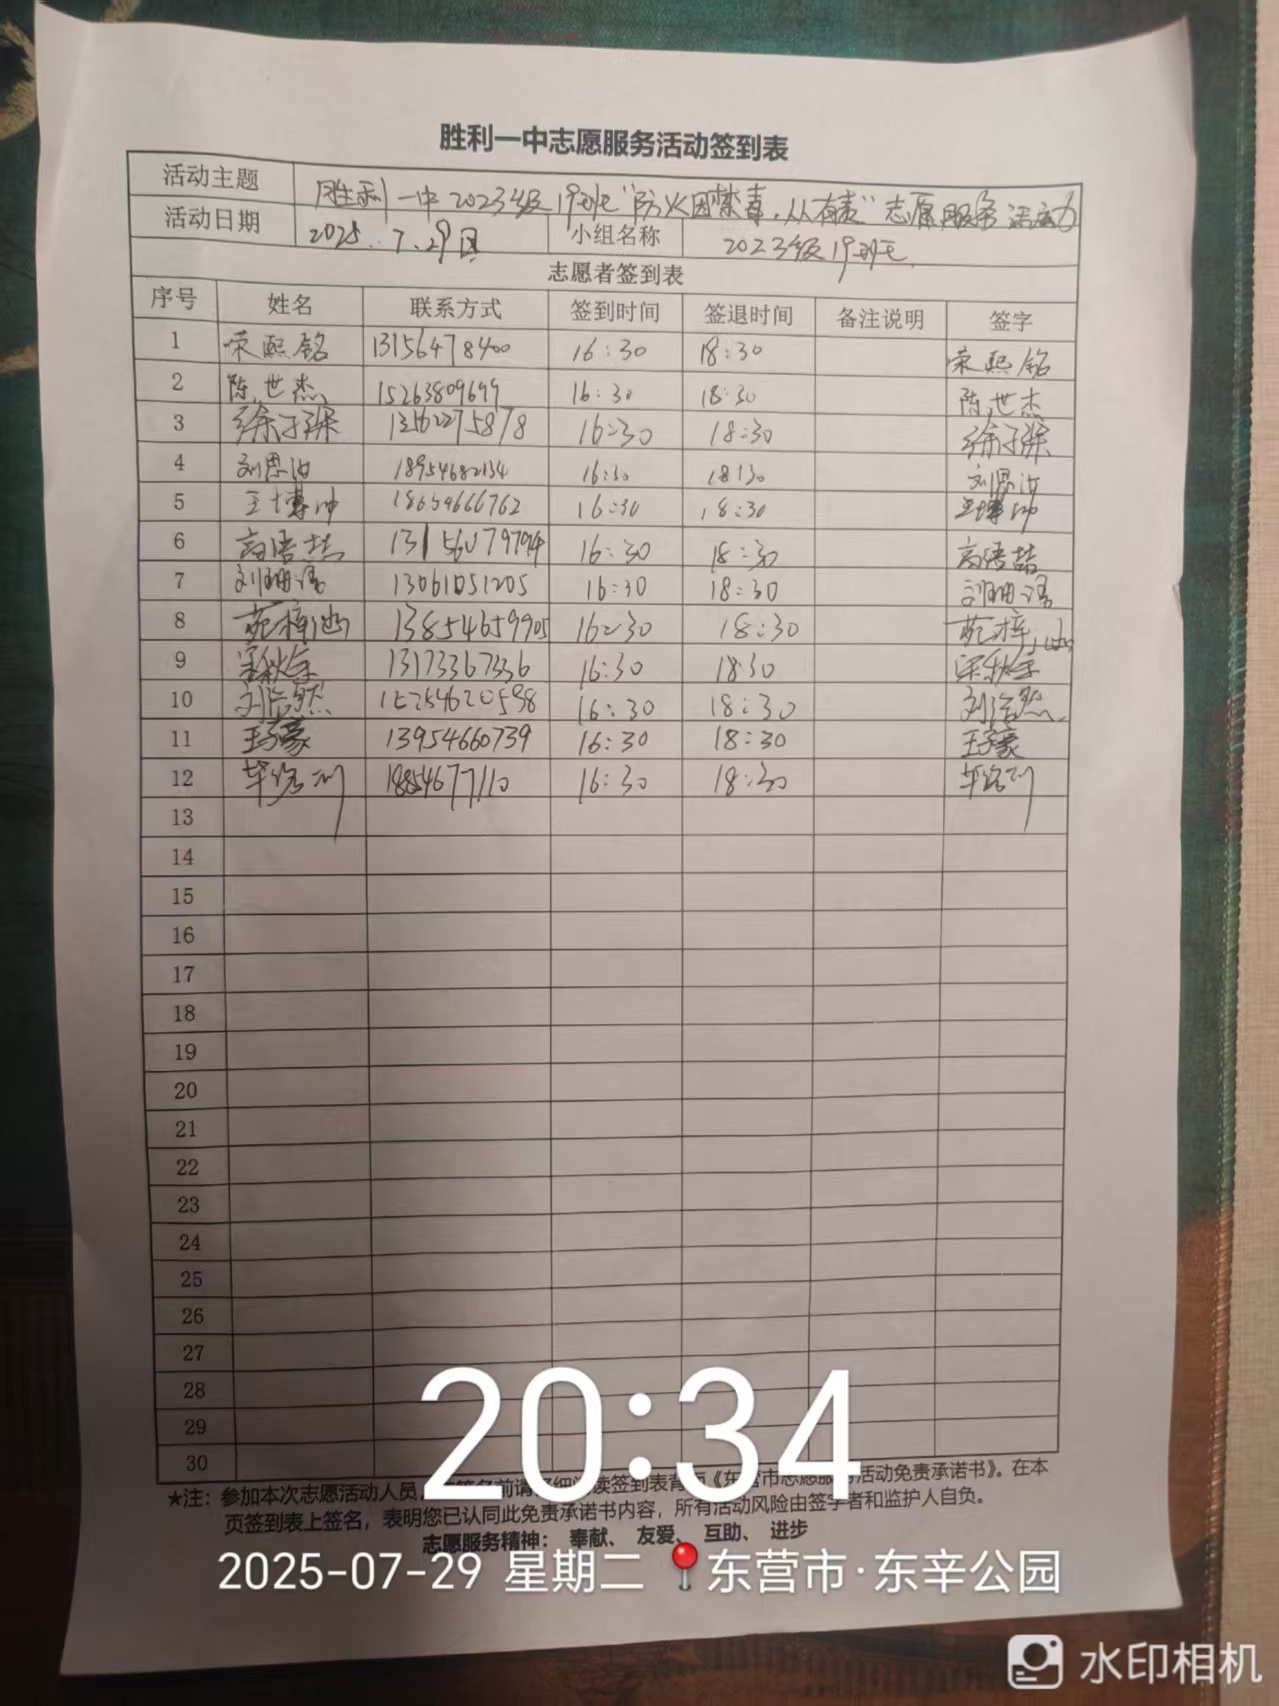 胜利一中志愿服务活动签到表
活动主题 胜利一中2023级19班"防火因禁毒,从有责"志愿服务活动
活动日期 2025.7.29日 小组名称 2023级19班
志愿者签到表
序号 姓名 联系方式 签到时间 签退时间 备注说明 签字
1 荣熙铭 13156478400 16:30 18:30 荣熙铭
2 陈世杰 15263809699 16:30 18:30 陈世杰
3 徐子琛 13562275878 16:30 18:30 徐子琛
4 刘恩汝 18954682134 16:30 18:30 刘恩汝
5 王博帅 18654666762 16:30 18:30 王博帅
6 高浯喆 16:30 18:30 高浯喆
7 刘珊语 13061051205 16:30 18:30 刘珊语
8 苑梓 13854659905 16:30 18:30 苑梓
9 宋秋宇 13173367336 16:30 18:30 宋秋宇
10 刘浩然 15254620598 16:30 18:30 刘浩然
11 王豪 13954660739 16:30 18:30 王豪
12 16:30 18:30
13
14
15
16
17
18
19
20
21
22
23
24
25
26
27
28
29
30
★注:参加本次志愿活动人员,在签名前请仔细阅读签到表背面《东营市志愿服务活动免责承诺书》。在本
页签到表上签名,表明您已认同此免责承诺书内容,所有活动风险由签字者和监护人自负。
志愿服务精神: 奉献、 友爱、 互助、 进步
20:34
2025-07-29 星期二 东营市·东辛公园
水印相机